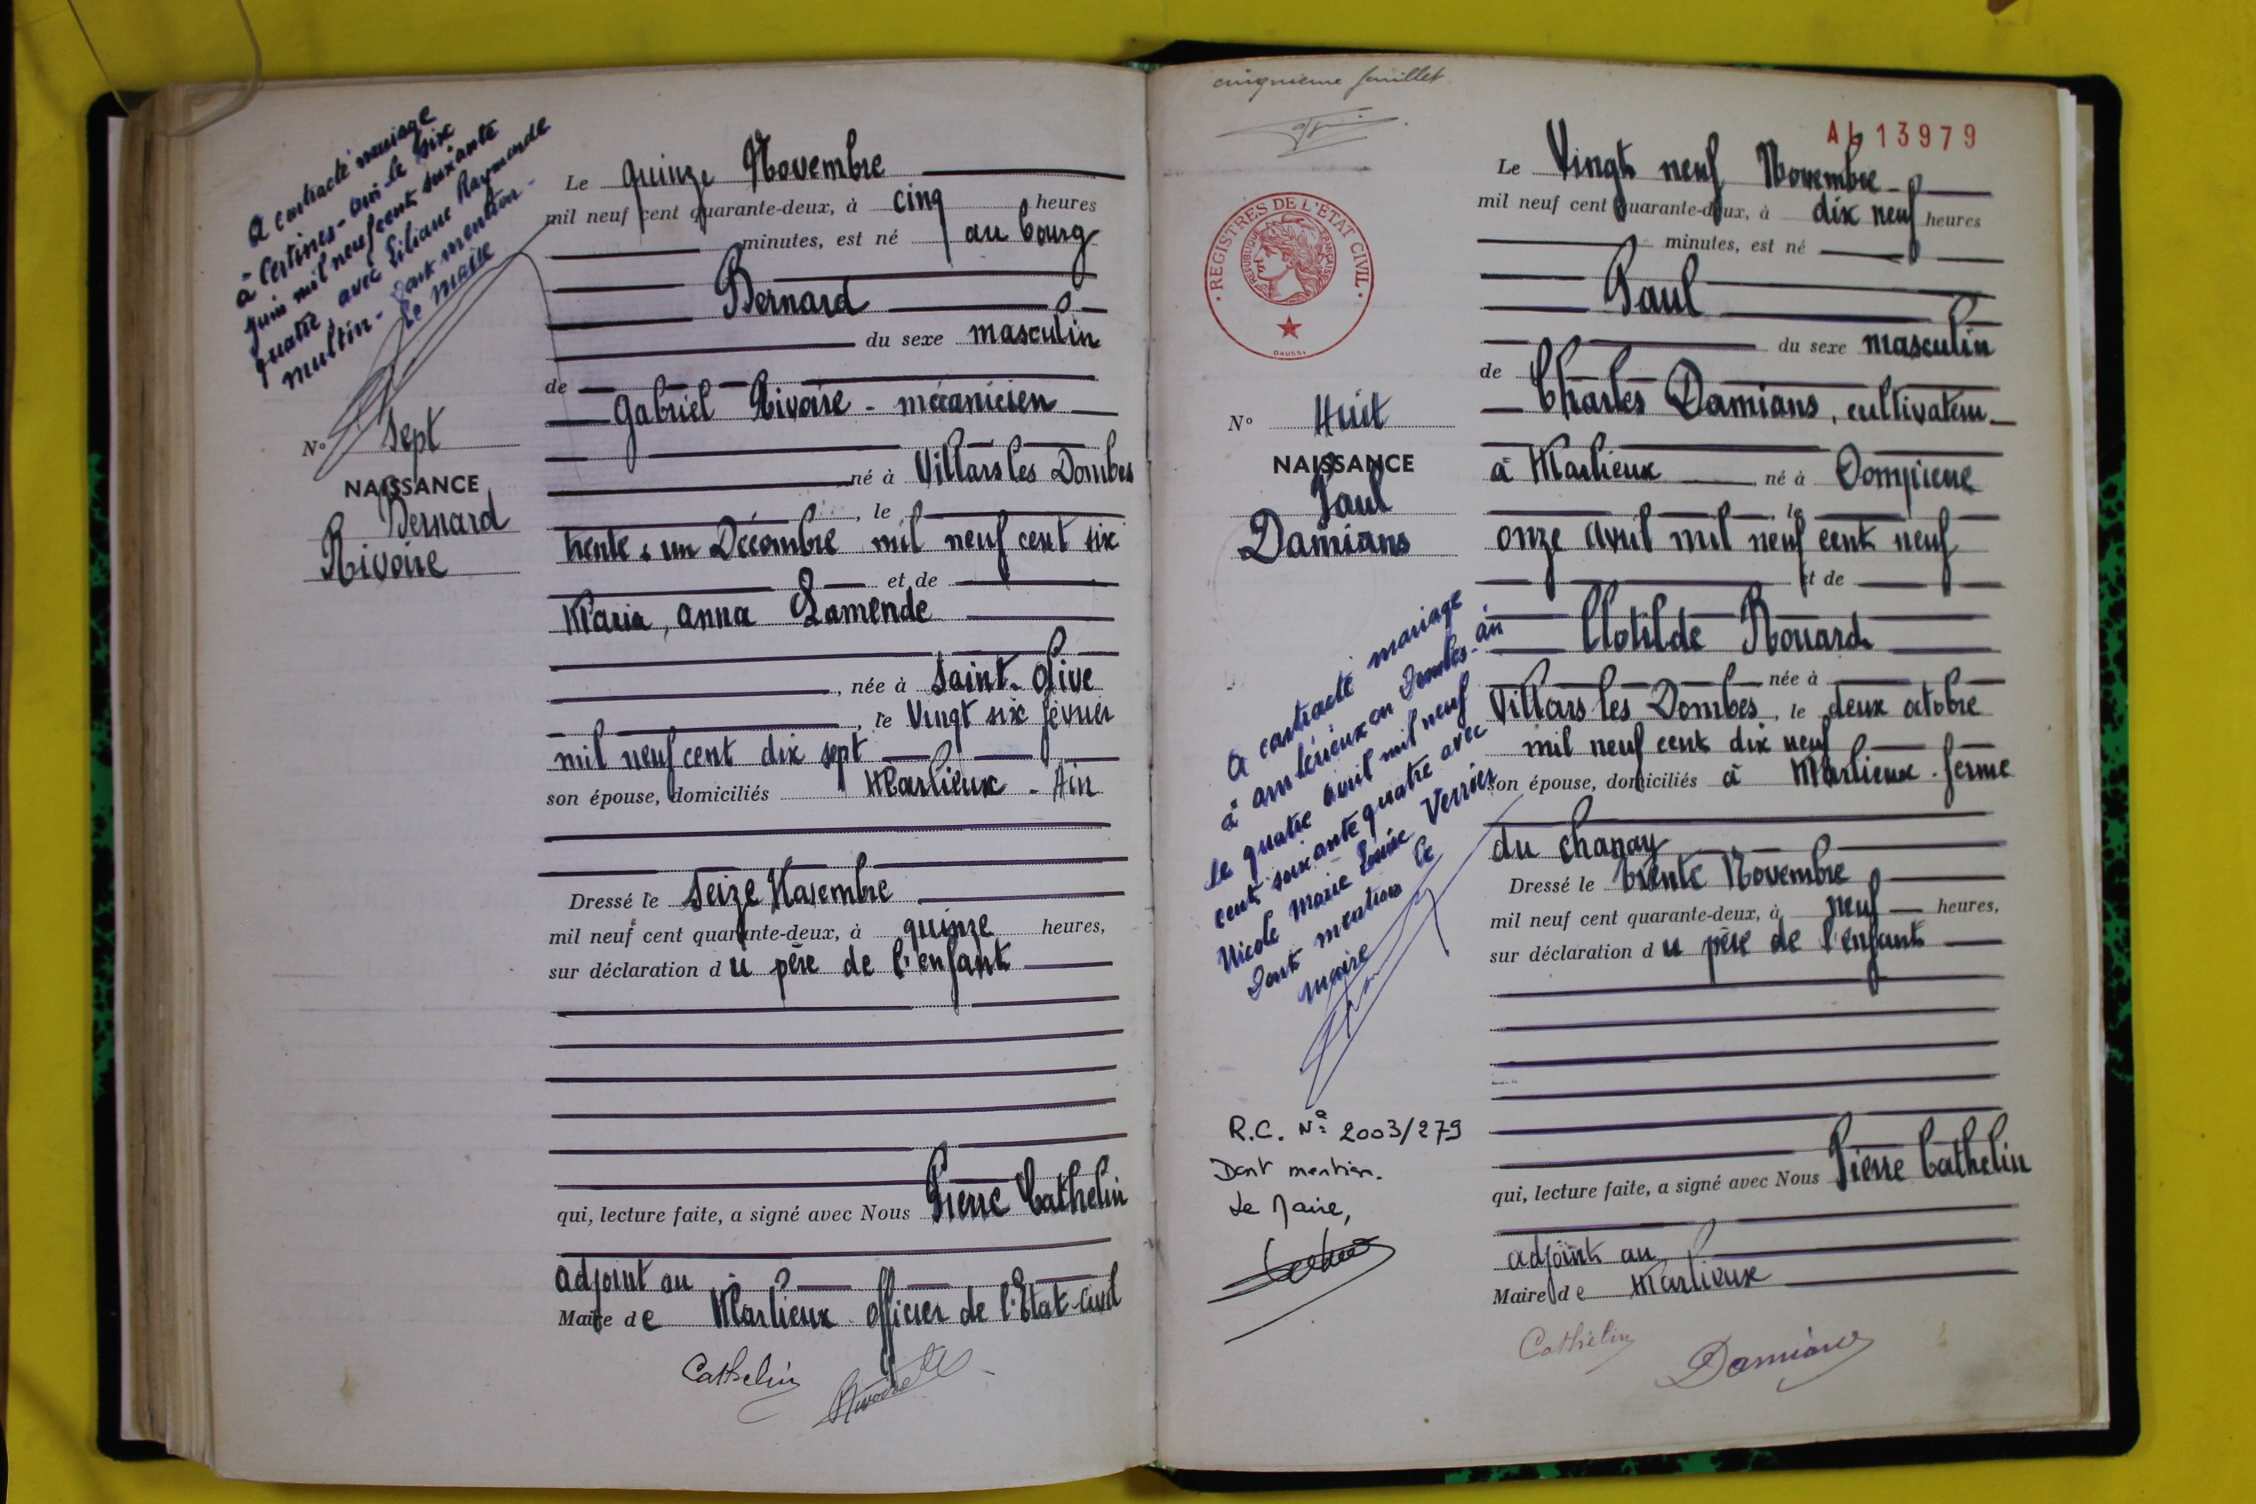 A contracté mariage
à Certines - Ain le six
juin mil neuf cent soixante
quatre, avec Liliane Raymonde
Multin - Dont mention -
Le Maire
N° Sept
NAISSANCE
Bernard
Rivoire
Le quinze Novembre
mil neuf cent quarante-deux, à cinq heures
minutes, est né au bourg
Bernard
du sexe masculin
de
Gabriel Rivoire - mécanicien
né à Villars les Dombes
, le
trente & un Décembre mil neuf cent six
et de
Maria, Anna Lamende
, née à Saint-Olive
, le Vingt six février
mil neuf cent dix sept
son épouse, domiciliés Marlieux - Ain
Dressé le Seize Novembre
mil neuf cent quarante-deux, à quinze heures,
sur déclaration du père de l'enfant
qui, lecture faite, a signé avec Nous Pierre Cathelin
adjoint au
Maire de Marlieux officier de l'Etat-Civil
Cathelin
cinquième feuillet
AL 13979
REGISTRES DE L'ÉTAT CIVIL
RÉPUBLIQUE FRANÇAISE
N° Huit
NAISSANCE
Paul
Damians
A contracté mariage
à Ambérieux en Dombes - Ain
le quatre avril mil neuf
cent soixante quatre avec
Nicole Marie Louise Verrier
Dont mention Le
Maire
R.C. N° 2003/279
Dont mention.
Le Maire,
Le Vingt neuf Novembre
mil neuf cent quarante-deux, à dix neuf heures
minutes, est né
Paul
du sexe masculin
de
Charles Damians, cultivateur
à Marlieux né à Dompierre
le
onze avril mil neuf cent neuf
et de
Clotilde Rouard
née à
Villars les Dombes, le deux octobre
mil neuf cent dix neuf
son épouse, domiciliés à Marlieux - ferme
du Chanay
Dressé le trente Novembre
mil neuf cent quarante-deux, à neuf heures,
sur déclaration du père de l'enfant
qui, lecture faite, a signé avec Nous Pierre Cathelin
adjoint au
Maire de Marlieux
Cathelin
Damians